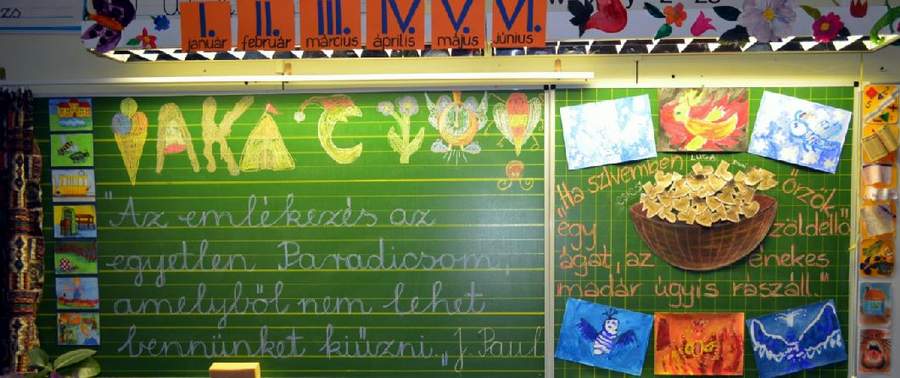 I. II. III. IV. V. VI.
január február március április május június
VAKÁCIÓ!
"Az emlékezés az
egyetlen Paradicsom,
amelyből nem lehet
bennünket kiűzni." J. Paul
LUCA
"Ha szívemben őrzök
egy zöldellő
ágat, az énekes
madár úgyis rászáll."